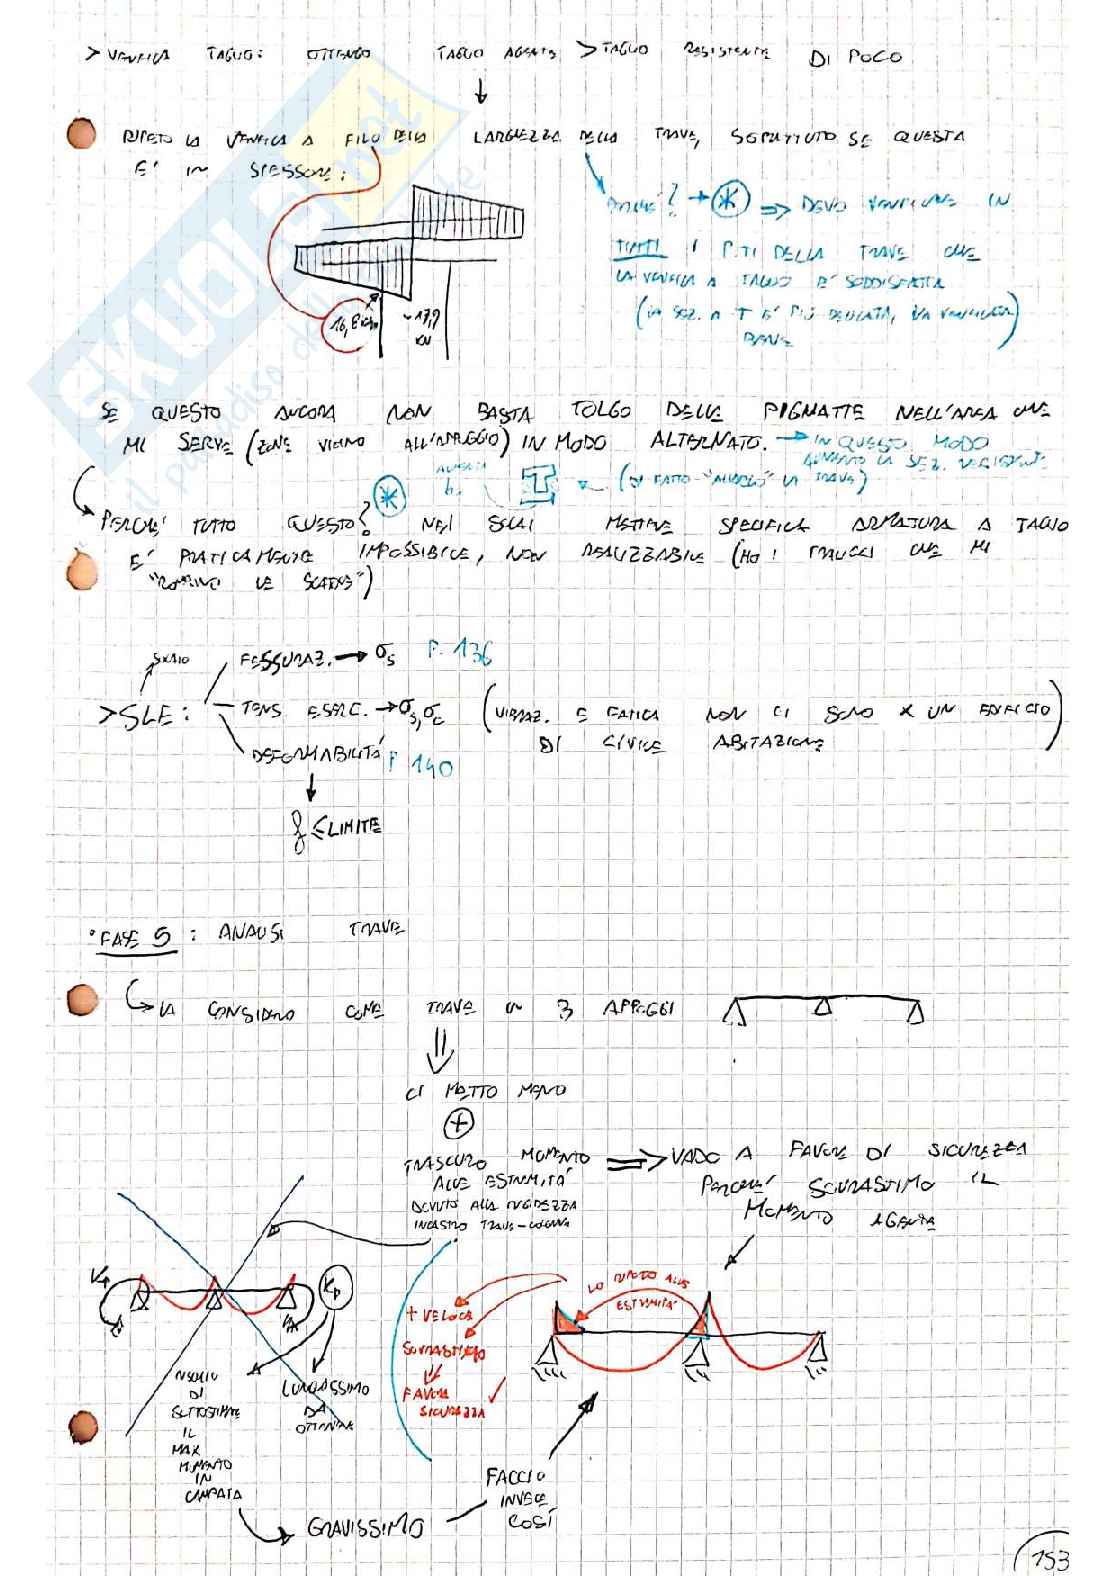 > VERIFICA TAGLIO: OTTENGO TAGLIO AGENTE > TAGLIO RESISTENTE DI POCO
RIPETO LA VERIFICA A FILO DELLA LARGHEZZA DELLA TRAVE, SOPRATTUTO SE QUESTA
E' IN SPESSORE:
PERCHE'? → * ⇒ DEVO VERIFICARE IN
TUTTI I P.TI DELLA TRAVE CHE
LA VERIFICA A TAGLIO E' SODDISFATTA
(LA SEZ. A T E' PIÙ DELICATA, VA VERIFICATA
BENE)
16,8 KN
~17,9
KN
SE QUESTO ANCORA NON BASTA TOLGO DELLE PIGNATTE NELL'AREA CHE
MI SERVE (ZONE VICINO ALL'APPOGGIO) IN MODO ALTERNATO. → IN QUESTO MODO
AUMENTO LA SEZ. RESISTENTE
AUMENTA
b.
(DI FATTO "ALLARGO" LA TRAVE)
*
PERCHE' TUTTO QUESTO? NEI SOLAI METTERE SPECIFICA ARMATURA A TAGLIO
E' PRATICAMENTE IMPOSSIBILE, NON REALIZZABILE (HO I TRALICCI CHE MI
"ROMPONO LE SCATOLE")
SOLAIO
FESSURAZ. → σs P. 136
> SLE: TENS ESERC. → σs, σc (VIBRAZ. E FATICA NON CI SONO X UN EDIFICIO
DI CIVILE ABITAZIONE)
DEFORMABILITÁ P 140
f ≤ LIMITE
• FASE 5: ANALISI TRAVE
LA CONSIDERO COME TRAVE IN 3 APPOGGI
CI METTO MENO
+
TRASCURO MOMENTO ⇒ VADO A FAVORE DI SICUREZZA
ALLE ESTREMITÁ
PERCHE' SOVRASTIMO IL
DOVUTO ALLA RIGIDEZZA
MOMENTO AGENTE
INCASTRO TRAVE-COLONNA
LO RIPETO ALLE
ESTREMITA'
+ VELOCE
SOVRASTIMO
FAVORE
SICUREZZA
RISCHIO
DI
SOTTOSTIMARE
IL
MAX
MOMENTO
IN
CAMPATA
LUNGHISSIMO
DA
OTTENERE
GRAVISSIMO
FACCIO
INVECE
COSÍ
153